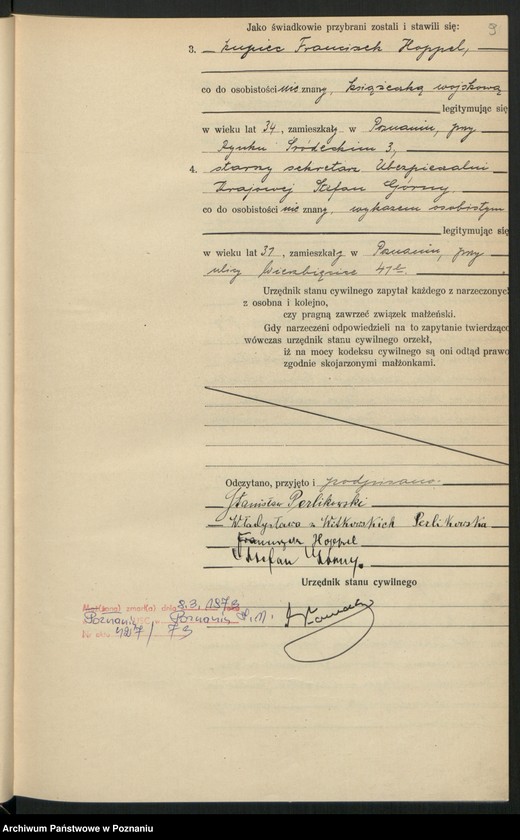 3
Jako świadkowie przybrani zostali i stawili się:
3. kupiec Francisek Hoppel,
co do osobistości nie znany, książeczką wojskową
legitymując się
w wieku lat 34, zamieszkały w Poznaniu, przy
Rynku Śródeckim 3,
4. starszy sekretarz Ubezpieczalni
Krajowej Stefan Górny
co do osobistości nie znany, wykazem osobistym
legitymując się
w wieku lat 31, zamieszkały w Poznaniu, przy
ulicy 47
Urzędnik stanu cywilnego zapytał każdego z narzeczonych
z osobna i kolejno,
czy pragną zawrzeć związek małżeński.
Gdy narzeczeni odpowiedzieli na to zapytanie twierdząco
wówczas urzędnik stanu cywilnego orzekł,
iż na mocy kodeksu cywilnego są oni odtąd prawo
zgodnie skojarzonymi małżonkami.
Odczytano, przyjęto i podpisano.
Stanisław Perlikowski
Władysława z Witkowskich Perlikowska
Franciszek Hoppel
Stefan Górny.
Urzędnik stanu cywilnego
zmarł(a) dnia 8.3.1973
Poznaniu Poznaniu
427/73
Archiwum Państwowe w Poznaniu